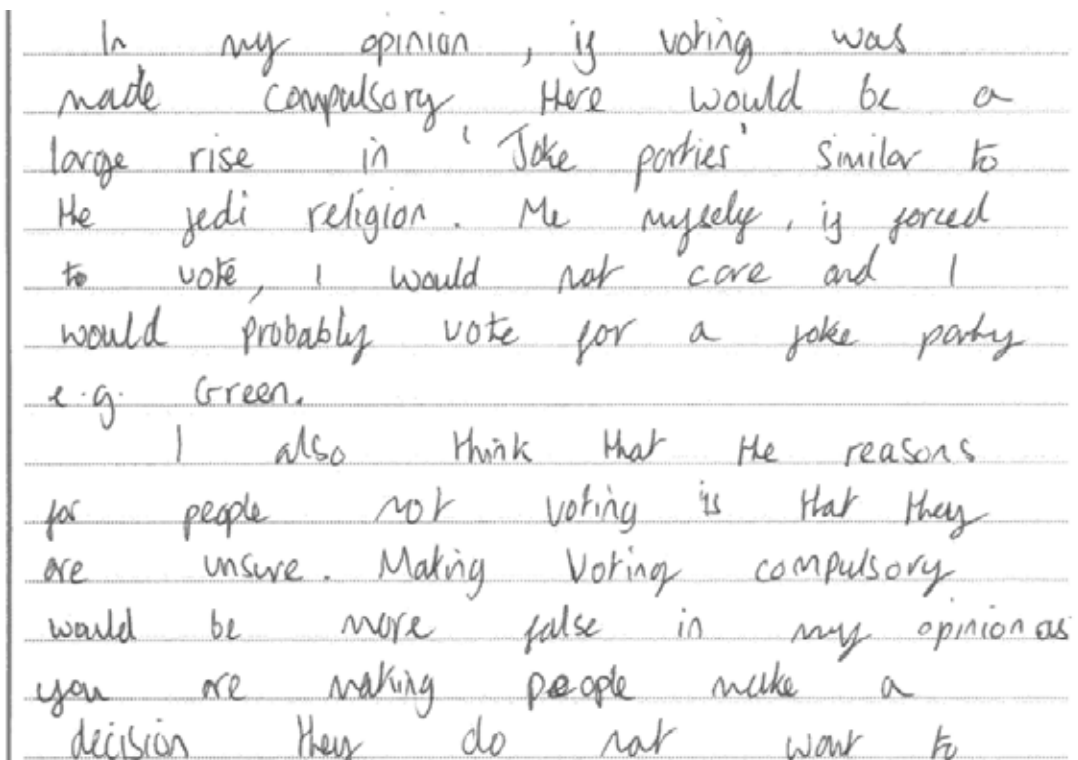 In my opinion, if voting was
made compulsory there would be a
large rise in 'Joke parties' similar to
the jedi religion. Me myself, if forced
to vote, I would not care and I
would probably vote for a joke party
e.g. Green.
I also think that the reasons
for people not voting is that they
are unsure. Making Voting compulsory
would be more false in my opinion as
you are making people make a
decision they do not want to